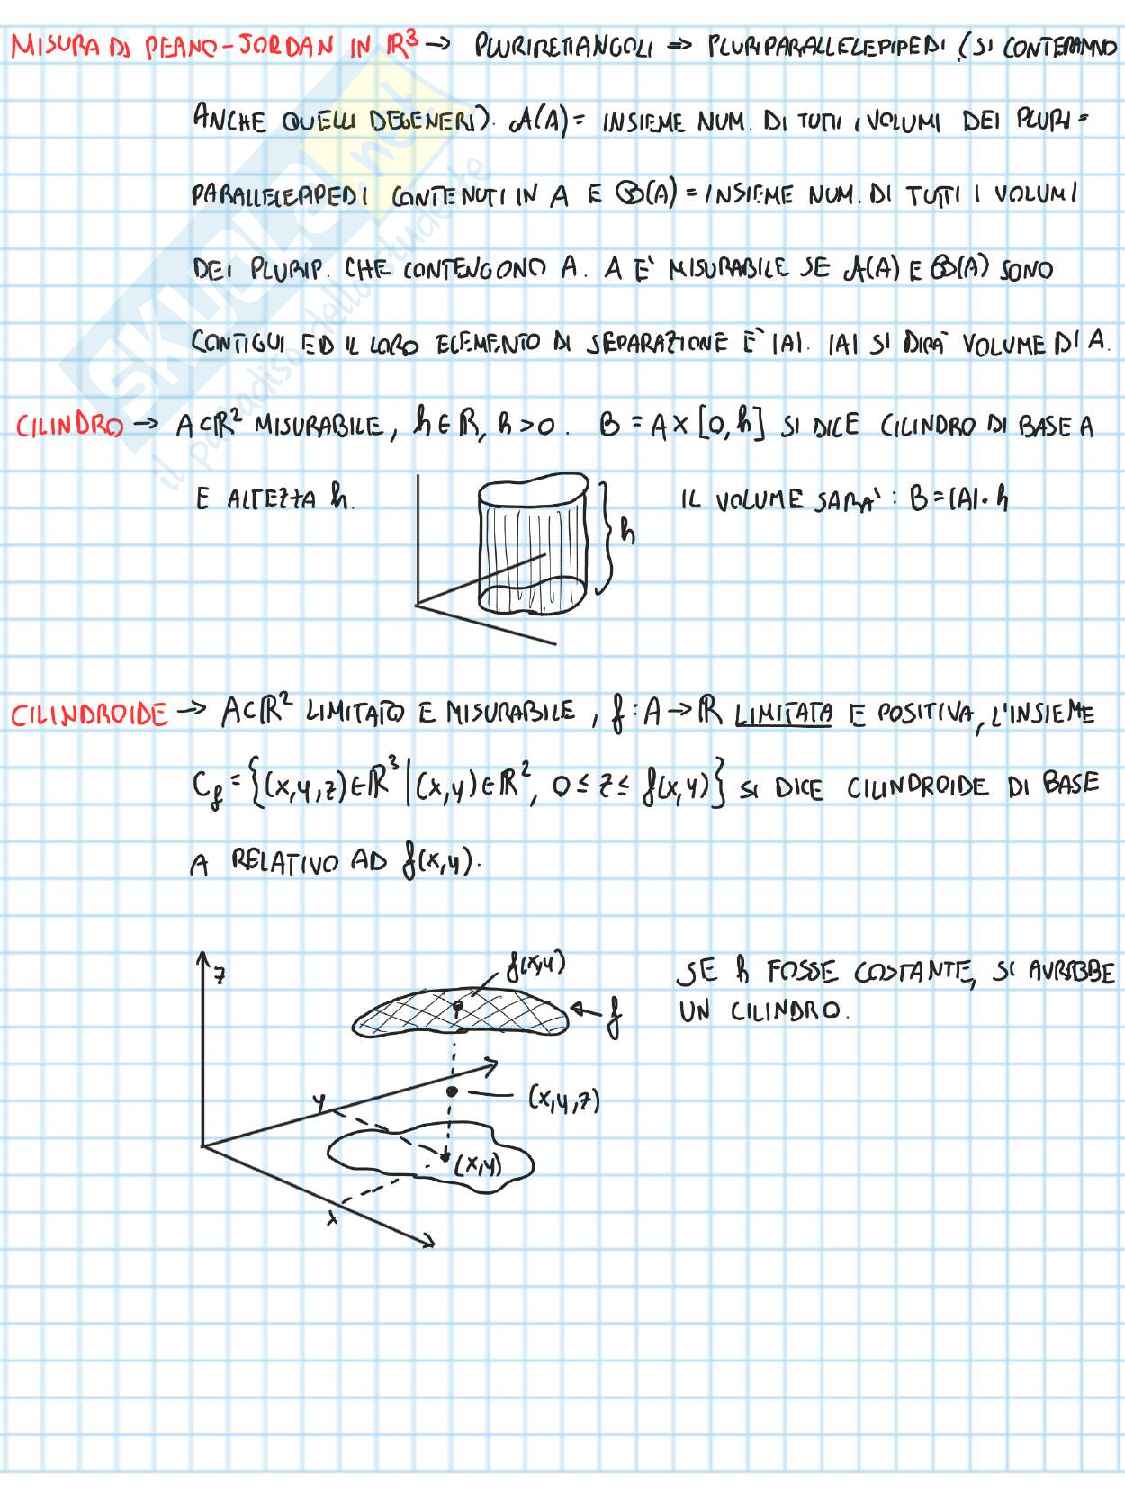 MISURA DI PEANO-JORDAN IN ℝ³ → PLURIRETTANGOLI ⇒ PLURIPARALLELEPIPEDI (SI CONTERANNO
ANCHE QUELLI DEGENERI). 𝒜(A) = INSIEME NUM. DI TUTTI I VOLUMI DEI PLURI =
PARALLELEPIPEDI CONTENUTI IN A E ℬ(A) = INSIEME NUM. DI TUTTI I VOLUMI
DEI PLURIP. CHE CONTENGONO A. A E' MISURABILE SE 𝒜(A) E ℬ(A) SONO
CONTIGUI ED IL LORO ELEMENTO DI SEPARAZIONE E' |A|. |A| SI DIRA' VOLUME DI A.
CILINDRO → A⊂ℝ² MISURABILE, h∈ℝ, h>0. B = A×[0,h] SI DICE CILINDRO DI BASE A
E ALTEZZA h.
IL VOLUME SARA': B=|A|·h
h
CILINDROIDE → A⊂ℝ² LIMITATO E MISURABILE, f:A→ℝ LIMITATA E POSITIVA, L'INSIEME
C_f = {(x,y,z)∈ℝ³ | (x,y)∈ℝ², 0≤z≤f(x,y)} SI DICE CILINDROIDE DI BASE
A RELATIVO AD f(x,y).
z
f(x,y)
f
SE h FOSSE COSTANTE, SI AVREBBE
UN CILINDRO.
(x,y,z)
y
(x,y)
x
SKUOLA.net
il paradiso dello studente